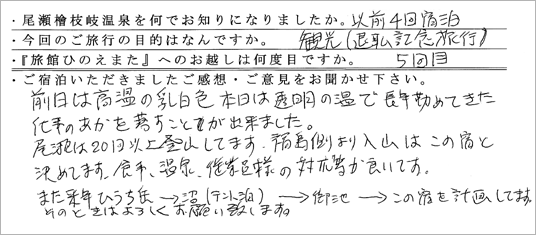 ・尾瀬檜枝岐温泉を何でお知りになりましたか。以前4回宿泊
・今回のご旅行の目的はなんですか。 観光(退職記念旅行)
・『旅館ひのえまた』へのお越しは何度目ですか。 5回目
・ご宿泊いただきましたご感想・ご意見をお聞かせ下さい。
前日は高温の乳白色 本日は透明の温で長年勤めてきた
仕事のあかを落すことが出来ました。
尾瀬は20回以上登山してます。福島側より入山はこの宿と
決めてます。食事、温泉、従業員様の対応等が良いです。
また来年ひうち岳→沼(テント泊)→御池→この宿を計画してます。
そのときはよろしくお願い致します。